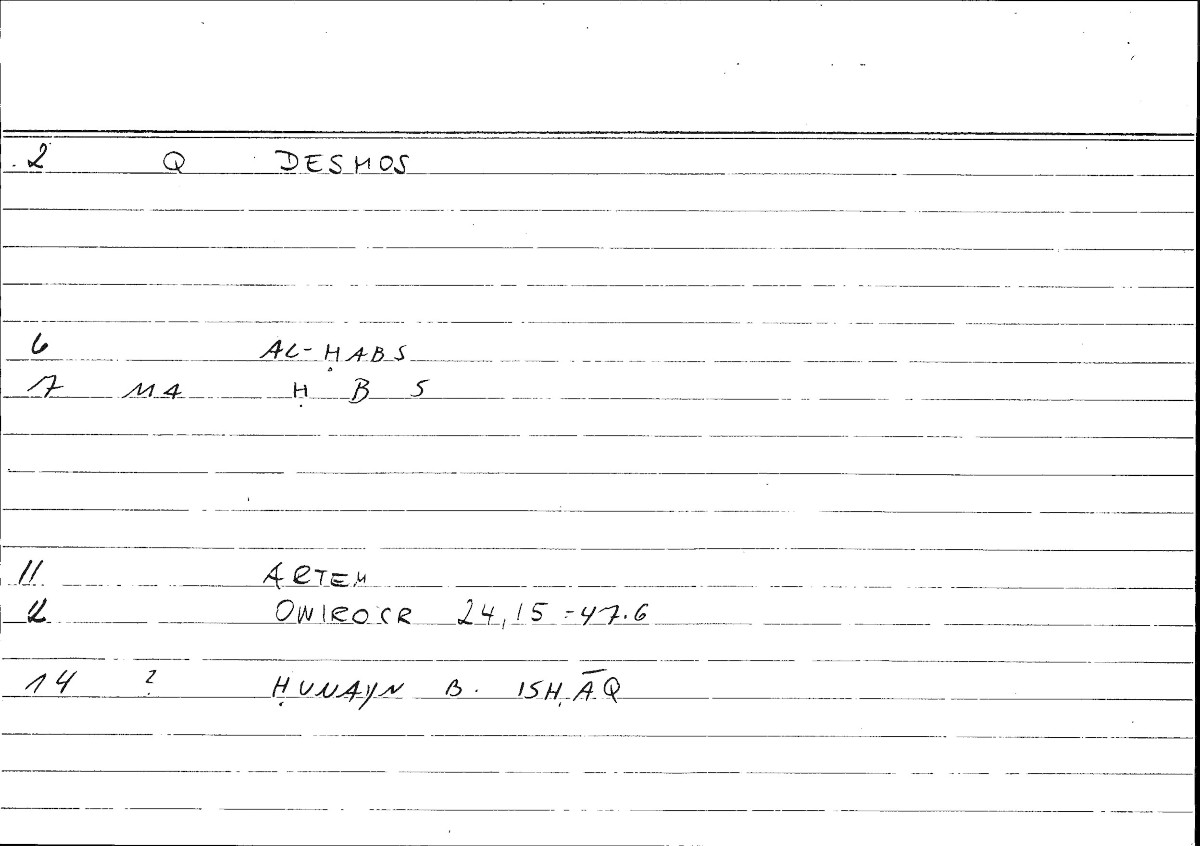 2 Q DESMOS
6 AL-ḤABS
7 M4 Ḥ B S
11 ARTEM
12 ONIROCR 24,15 = 47.6
14 ? ḤUNAYN B. ISḤĀQ